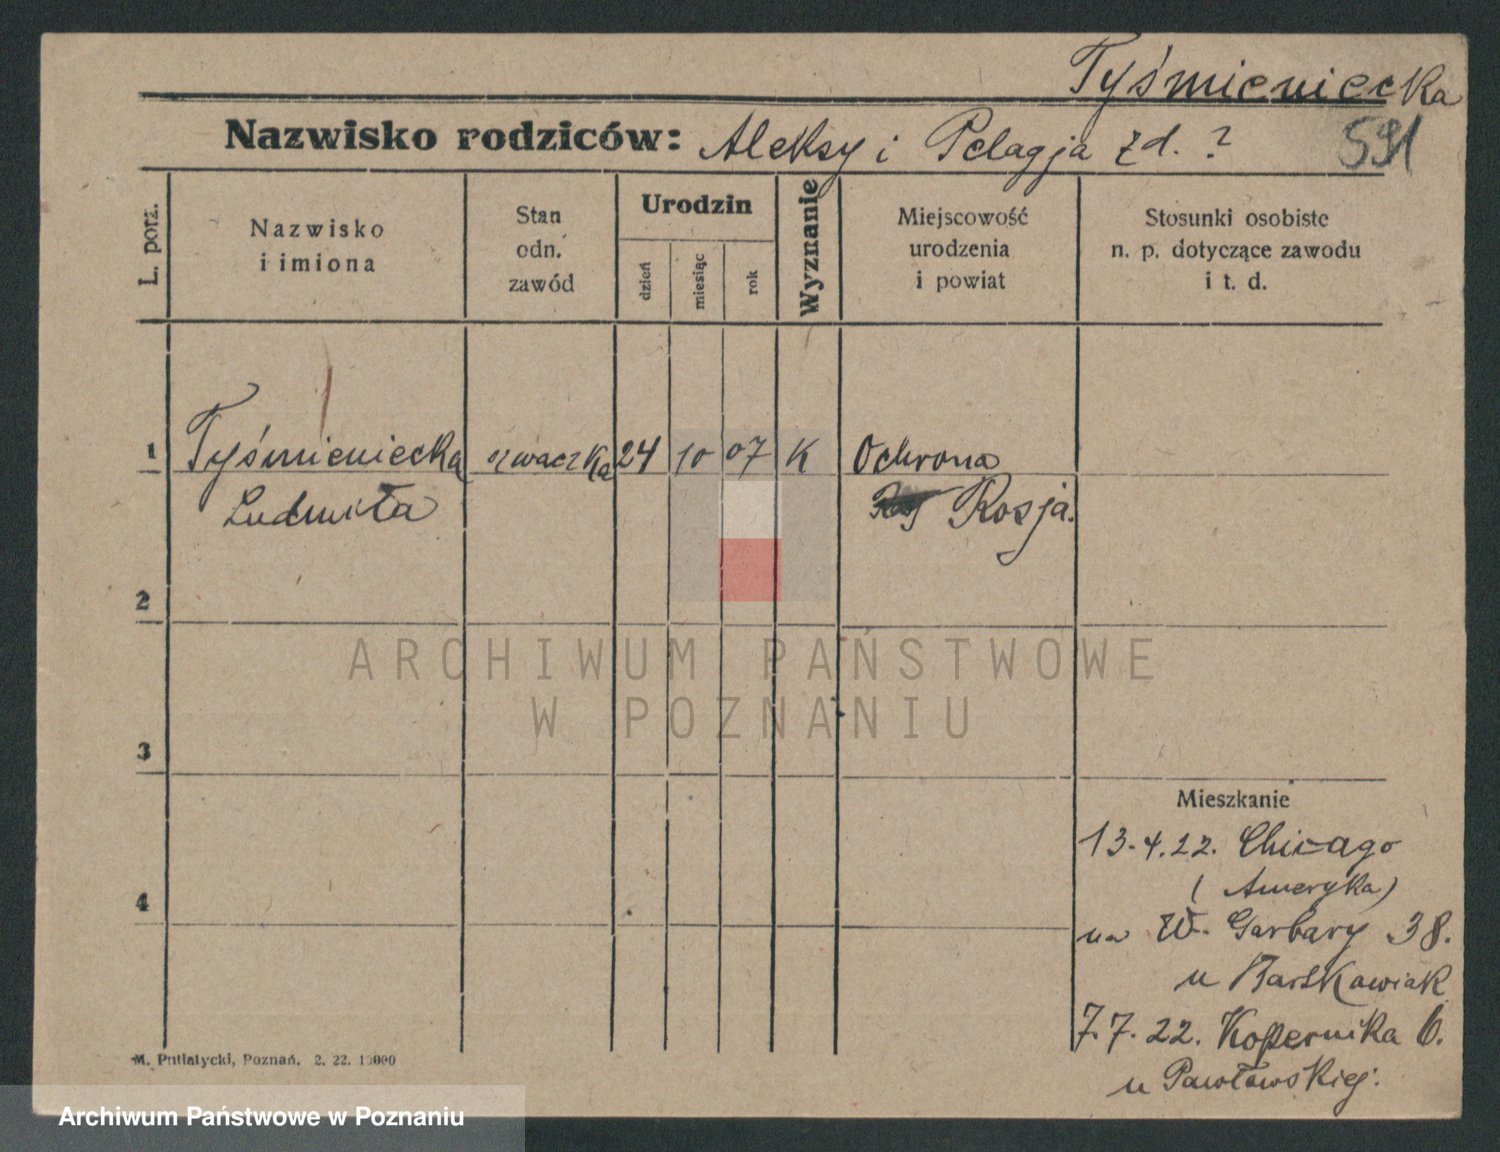 Tyśmieniecka
Nazwisko rodziców: Aleksy i Pelagja zd. ?
591
L. porz.
Nazwisko
i imiona
Stan
odn.
zawód
Urodzin
dzień
miesiąc
rok
Wyznanie
Miejscowość
urodzenia
i powiat
Stosunki osobiste
n. p. dotyczące zawodu
i t. d.
1 Tyśmieniecka szwaczka 24 10 07 K Ochrona
Ludmiła Rosja.
2
ARCHIWUM PAŃSTWOWE
W POZNANIU
3
Mieszkanie
13.4.22. Chicago
(Ameryka)
4
na W. Garbary 38.
u Bartkowiak
7.7.22. Kopernika 6.
u Pawłowskiej.
M. Putiatycki, Poznań. 2. 22. 15000
Archiwum Państwowe w Poznaniu